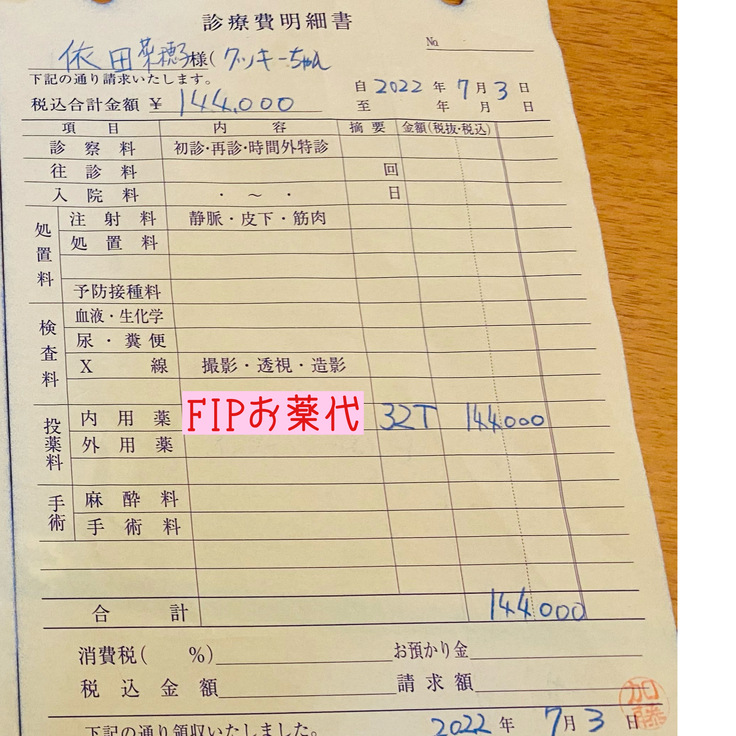 診療費明細書
№
依田菜穂子様(クッキーちゃん
下記の通り請求いたします。
自 2022 年 7 月 3 日
税込合計金額 ¥ 144,000
至 年 月 日
項目 内容 摘要 金額(税抜・税込)
診察料 初診・再診・時間外特診
往診料 回
入院料 ・ ～ ・ 日
処置料
注射料 静脈・皮下・筋肉
処置料
予防接種料
検査料
血液・生化学
尿・糞便
X線 撮影・透視・造影
投薬料
内用薬 FIPお薬代 32T 144000
外用薬
手術
麻酔料
手術料
合計 144000
消費税( %) お預かり金
税込金額 請求額
加藤
下記の通り領収いたしました。 2022 年 7 月 3 日